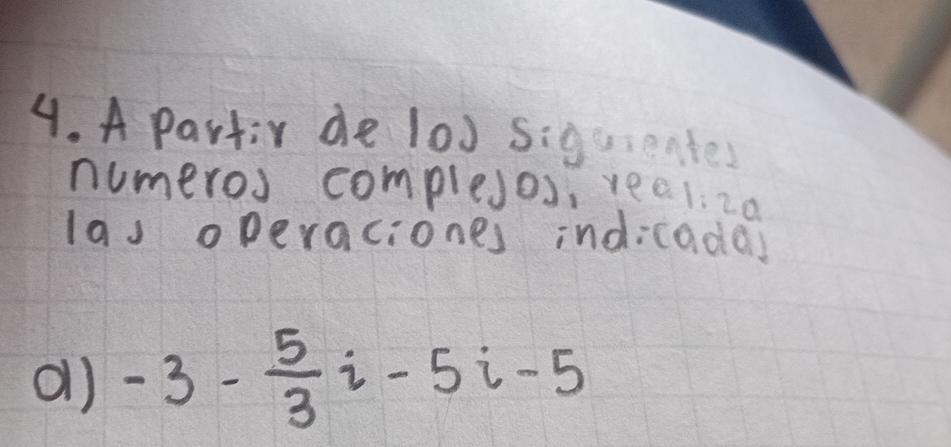 4. A partir de los siguientes
numeros complejos, realiza
las operaciones indicadas
a) -3 - 5/3 i - 5i - 5